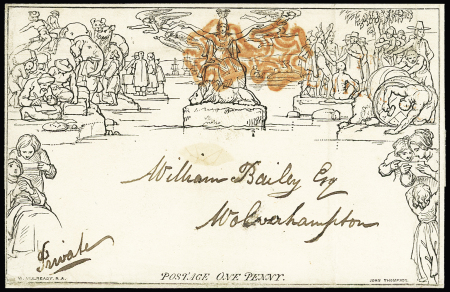 William Bailey Esq
Wolverhampton
Private
W. MULREADY. R.A.
POSTAGE ONE PENNY.
JOHN THOMPSON